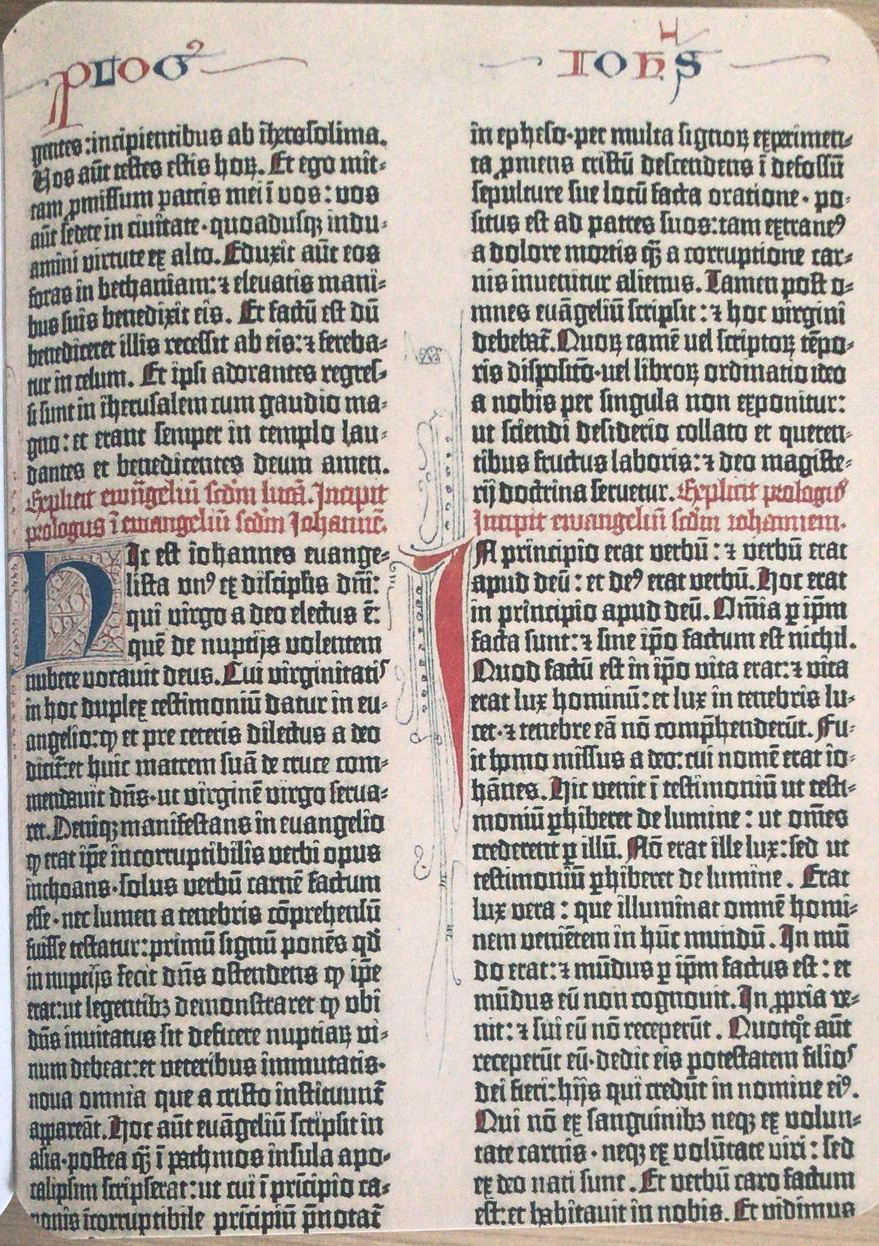 Plog⁹
Ioh's
gentes:incipientibus ab ih̄erosolima.
Vos aūt testes estis hoꝝ. Et ego mit-
tam ꝓmissum patris mei ī vos: vos
aūt sedete in civitate·quoadusqꝫ indu-
amini virtute ex alto. Eduxit aūt eos
foras in bethaniam:⁊ elevatis mani-
bus suis benedixit eis. Et factū est dū
benediceret illis recessit ab eis:⁊ fereba-
tur in celum. Et ipsi adorantes regres-
si sunt in iherusalem cum gaudio ma-
gno:et erant semper in templo lau-
dantes et benedicentes deum amen.
Explicit ewāgeliū scdm lucā. Incipit
prologus ī ewangeliū scdm Iohannē.
Hic est iohannes evange-
lista un⁹ ex discipl̄is dn̄i:
qui virgo a deo electus ē:
quē de nuptijs volentem
nubere vocavit deus. Cui virginitatis
in hoc duplex testimoniū datur in eu-
angelio:ꝙ et pre ceteris dilectus a deo
dicit̄:et huic matrem suā de cruce com-
mendavit dn̄s·ut virginē virgo serva-
ret. Deniqꝫ manifestans in euangelio
ꝙ erat ip̄e incorruptibilis verbi opus
inchoans·solus verbū carnē factum
esse·nec lumen a tenebris cōprehensū
fuisse testatur:primū signū ponēs qd̄
in nuptijs fecit dn̄s ostendens ꝙ ip̄e
erat:ut legentibꝫ demonstraret ꝙ ubi
dn̄s invitatus sit deficere nuptiaꝝ vi-
num debeat:et veteribus immutatis·
nova omnia que a cristo instituunt̄
appareāt. Hoc aūt euāgeliū scripsit in
asia·postea q̄ꝫ ī pathmos insula apo-
calipsim scripserat:ut cui ī pricīpio ca-
nonis īcorruptibile pricīpiū p̄notat̄
in epheso·per multa signoꝝ experimen-
ta ꝓmens cristū descendens ī defossū
sepulture sue locū facta oratione·po-
situs est ad patres suos:tam extrane⁹
a dolore mortis q̄ꝫ a corruptione car-
nis invenitur alienus. Tamen post o-
mnes euāgeliū scripsit:⁊ hoc virgini
debebat̄. Quoꝝ tamē vel scriptoꝝ tēpo-
ris disposito·vel libroꝝ ordinatio ideo
a nobis per singula non exponitur:
ut sciendi desiderio collato et queren-
tibus fructus laboris:⁊ deo magiste-
rij doctrina servetur. Explicit prologus
Incipit ewangeliū scdm iohannem.
In principio erat verbū:⁊ verbū erat
apud deū:et de⁹ erat verbū. Hoc erat
in principio apud deū. Om̄ia ꝑ ip̄m
facta sunt:⁊ sine ip̄o factum est nichil.
Quod factū est in ip̄o vita erat:⁊ vita
erat lux hominū:et lux in tenebris lu-
cet·⁊ tenebre eā nō comp̄henderūt. Fu-
it homo missus a deo:cui nomē erat io-
hānes. Hic venit ī testimoniū ut testi-
moniū ꝑhiberet de lumine:ut om̄es
crederent ꝑ illū. Nō erat ille lux:sed ut
testimoniū ꝑhiberet de lumine. Erat
lux vera:que illuminat omnē homi-
nem veniētem in hūc mundū. In mū-
do erat:⁊ mūdus ꝑ ip̄m factus est:et
mūdus eū non cognovit. In ꝓpria ve-
nit:⁊ sui eū nō receperūt. Quotqt̄ aūt
receperūt eū·dedit eis potestatem filios
dei fieri:hijs qui credūt in nomine ei⁹.
Qui nō ex sanguinibꝫ neqꝫ ex volun-
tate carnis·neqꝫ ex volūtate viri:sed
ex deo nati sunt. Et verbū caro factum
est:et habitavit in nobis. Et vidimus